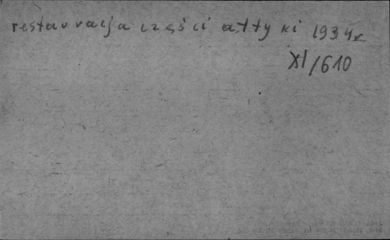 restauracja części attyki 1934r
XI/610